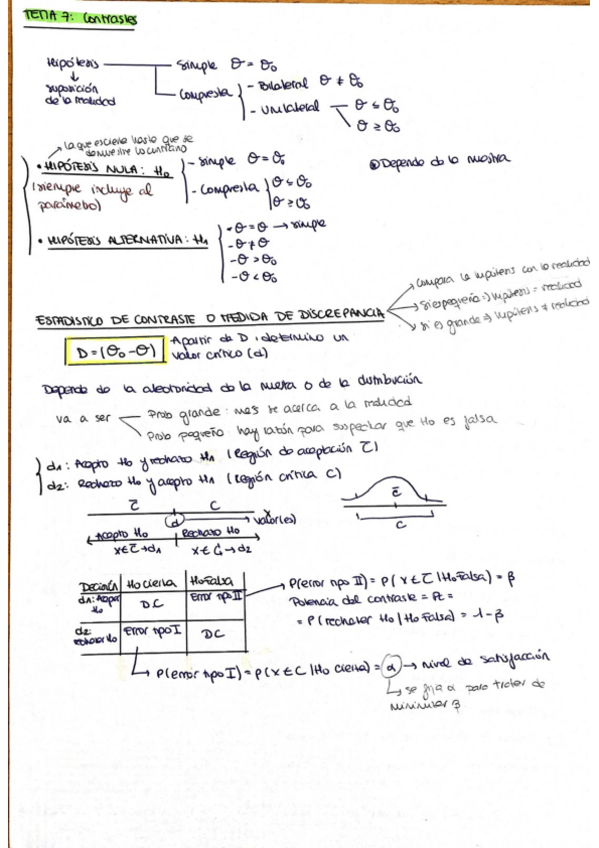 TEMA 7: Contrastes
Hipótesis
simple θ = θ₀
suposición
de la realidad
Compuesta
- Bilateral θ ≠ θ₀
- Unilateral
θ ≤ θ₀
θ ≥ θ₀
la que es cierta hasta que se
demuestre lo contrario
• HIPÓTESIS NULA: H₀
- simple θ = θ₀
(siempre incluye al
parámetro)
- Compuesta
θ ≤ θ₀
θ ≥ θ₀
Depende de la muestra
• HIPÓTESIS ALTERNATIVA: H₁
- θ = θ → simple
- θ ≠ θ
- θ > θ₀
- θ < θ₀
ESTADISTICO DE CONTRASTE O MEDIDA DE DISCREPANCIA
compara la hipótesis con la realidad
si es pequeña ⇒ hipótesis = realidad
si es grande ⇒ hipótesis ≠ realidad
D = (θ₀ - θ)
A partir de D, determino un
valor crítico (d)
Depende de la aleatoriedad de la muestra o de la distribución
va a ser
Prob grande: mas se acerca a la realidad
Prob pequeña: hay razón para sospechar que H₀ es falsa
d₁: Acepto H₀ y rechazo H₁ (Región de aceptación C̄)
d₂: Rechazo H₀ y acepto H₁ (Región crítica C)
C̄ C
d
valor(es)
Acepto H₀ Rechazo H₀
x ∈ C̄ → d₁ x ∈ C → d₂
C̄
C
Decisión H₀ cierta H₀ Falsa
d₁: Acepar H₀ DC Error tipo II
d₂: rechazar H₀ Error tipo I DC
P(error tipo II) = P(x ∈ C̄ | H₀ Falsa) = β
Potencia del contraste = Pc =
= P(rechazar H₀ | H₀ Falsa) = 1 - β
P(error tipo I) = P(x ∈ C | H₀ cierta) = α → nivel de satisfacción
se fija α para tratar de
minimizar β